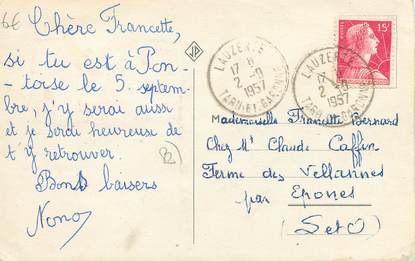 6€
Chère Francette,
si tu est à Pon-
toise le 5. septem-
bre, j'y serai aussi
et je serai heureuse de
t'y retrouver.
Bons baisers
Nono
JP
LAUZERTE
17 H
2 -9
1957
TARN-ET-GARONNE
LAUZERTE
2 -9
1957
TARN-ET-GARONNE
15F
Mademoiselle Francette Bernard
Chez Mr Claude Caffin
Ferme des Vellannes
par Epones
(S et O)